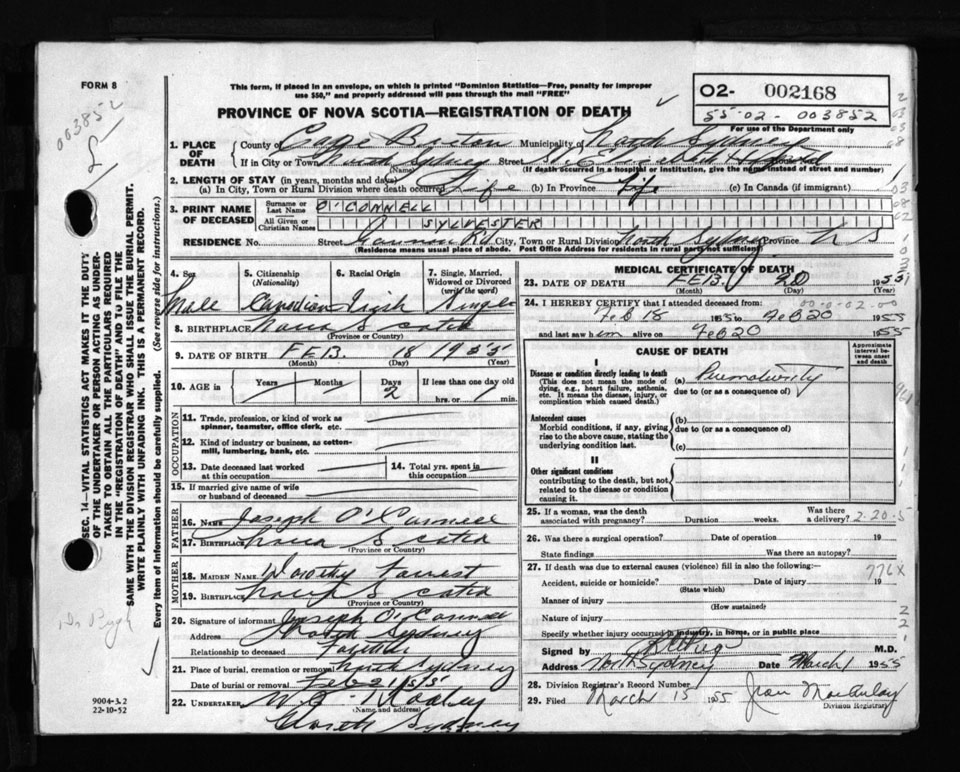 FORM 8
This form, if placed in an envelope, on which is printed "Dominion Statistics—Free, penalty for improper
use $50," and properly addressed will pass through the mail "FREE"
PROVINCE OF NOVA SCOTIA—REGISTRATION OF DEATH
O2- 002168
55-02-003852
For use of the Department only
003852
1. PLACE OF DEATH
County of Cape Breton Municipality of North Sydney
If in City or Town North Sydney Street St. Elizabeth Hospital
(Name) (If death occurred in a hospital or institution, give the name instead of street and number)
2. LENGTH OF STAY (in years, months and days)
(a) In City, Town or Rural Division where death occurred Life (b) In Province Life (c) In Canada (if immigrant)
3. PRINT NAME OF DECEASED
Surname or Last Name O'CONNELL
All Given or Christian Names SYLVESTER
RESIDENCE No. Street Cannon Rd City, Town or Rural Division North Sydney Province N S
(Residence means usual place of abode. Post Office Address for residents in rural parts not sufficient)
4. Sex Male
5. Citizenship (Nationality) Canadian
6. Racial Origin Irish
7. Single, Married, Widowed or Divorced (write the word) Single
8. BIRTHPLACE Nova Scotia
(Province or Country)
9. DATE OF BIRTH FEB. 18 1955
(Month) (Day) (Year)
10. AGE in Years Months Days 2 If less than one day old
hrs. or min.
OCCUPATION
11. Trade, profession, or kind of work as
spinner, teamster, office clerk, etc.
12. Kind of industry or business, as cotton-
mill, lumbering, bank, etc.
13. Date deceased last worked
at this occupation
14. Total yrs. spent in
this occupation
15. If married give name of wife
or husband of deceased
FATHER
16. NAME Joseph O'Connell
17. BIRTHPLACE Nova Scotia
(Province or Country)
MOTHER
18. MAIDEN NAME Dorothy Forrest
19. BIRTHPLACE Nova Scotia
(Province or Country)
20. Signature of informant Joseph O'Connell
Address North Sydney
Relationship to deceased Father
21. Place of burial, cremation or removal North Sydney
Date of burial or removal Feb 21/55
22. UNDERTAKER
(Name and address)
North Sydney
MEDICAL CERTIFICATE OF DEATH
23. DATE OF DEATH FEB. 20 1955
(Month) (Day)
24. I HEREBY CERTIFY that I attended deceased from
Feb 18 1955 to Feb 20 1955
and last saw him alive on Feb 20 1955
CAUSE OF DEATH
Approximate interval between onset and death
I
Disease or condition directly leading to death
(This does not mean the mode of
dying, e.g., heart failure, asthenia,
etc. It means the disease, injury, or
complication which caused death.)
(a) Prematurity
due to (or as a consequence of)
Antecedent causes
Morbid conditions, if any, giving
rise to the above cause, stating the
underlying condition last.
(b)
due to (or as a consequence of)
(c)
II
Other significant conditions
contributing to the death, but not
related to the disease or condition
causing it.
25. If a woman, was the death
associated with pregnancy? Duration weeks. Was there
a delivery? 2-20-5
26. Was there a surgical operation? Date of operation 19
State findings Was there an autopsy?
27. If death was due to external causes (violence) fill in also the following:- 776X
Accident, suicide or homicide? Date of injury 19
(State which)
Manner of injury
(How sustained)
Nature of injury
Specify whether injury occurred in industry, in home, or in public place
Signed by M.D.
Address North Sydney Date March 1 1955
28. Division Registrar's Record Number
29. Filed March 15 1955 Jean MacAulay
Division Registrar
SEC. 14—VITAL STATISTICS ACT MAKES IT THE DUTY
OF THE UNDERTAKER OR PERSON ACTING AS UNDER-
TAKER TO OBTAIN ALL THE PARTICULARS REQUIRED
IN THE "REGISTRATION OF DEATH" AND TO FILE THE
SAME WITH THE DIVISION REGISTRAR WHO SHALL ISSUE THE BURIAL PERMIT.
WRITE PLAINLY WITH UNFADING INK. THIS IS A PERMANENT RECORD.
Every item of information should be carefully supplied. (See reverse side for instructions.)
Dr Pugh
9004-3.2
22-10-52